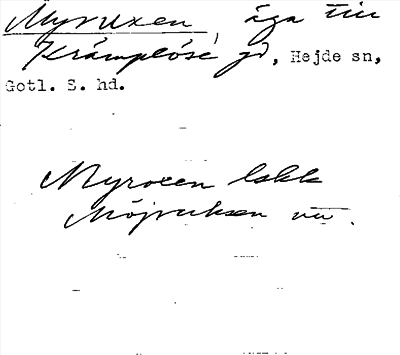 Myruxen, äga till
Krämplöse gd, Hejde sn,
Gotl. S. hd.
Myroxen lakk
Möjruksen uu.